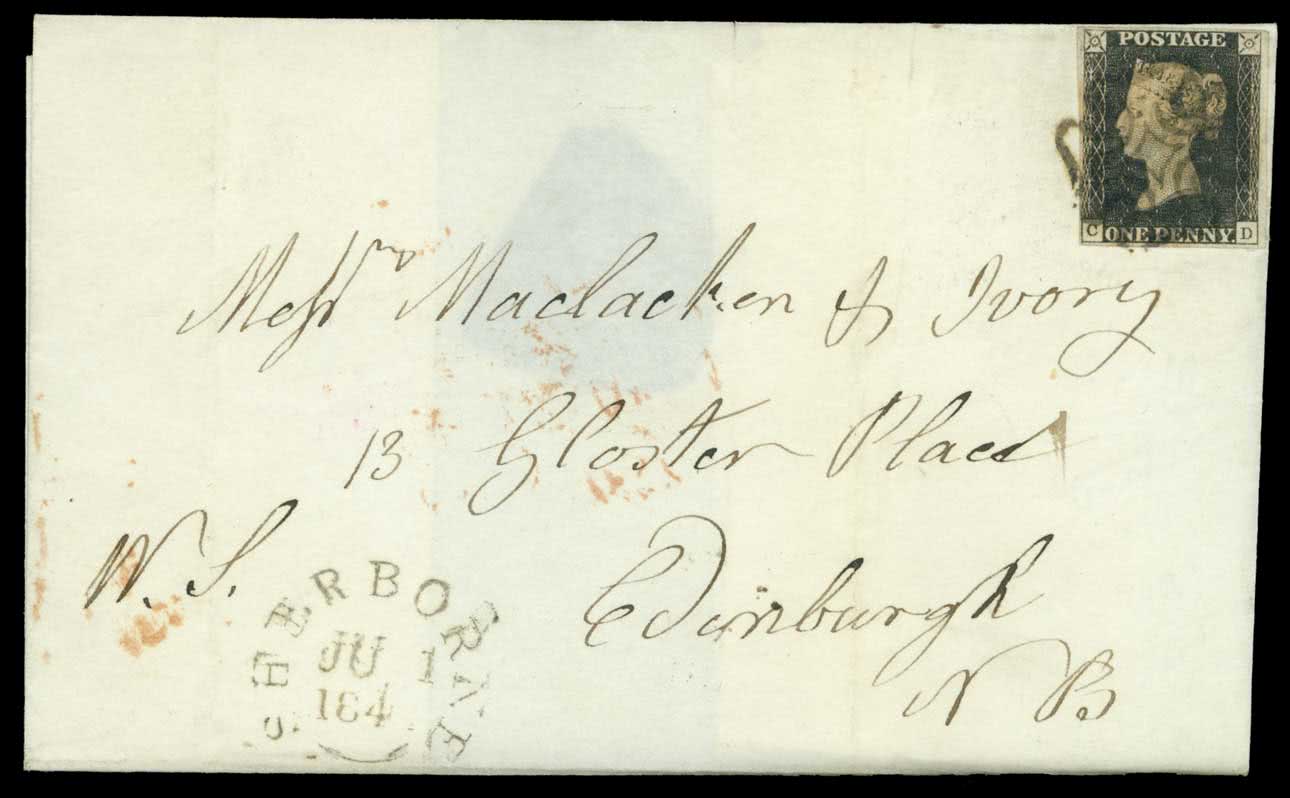 POSTAGE
C ONE PENNY. D
Messrs Maclacken & Ivory
13 Gloster Place
W. S.
Edinburgh
N B
SHERBORNE
JU 1
184